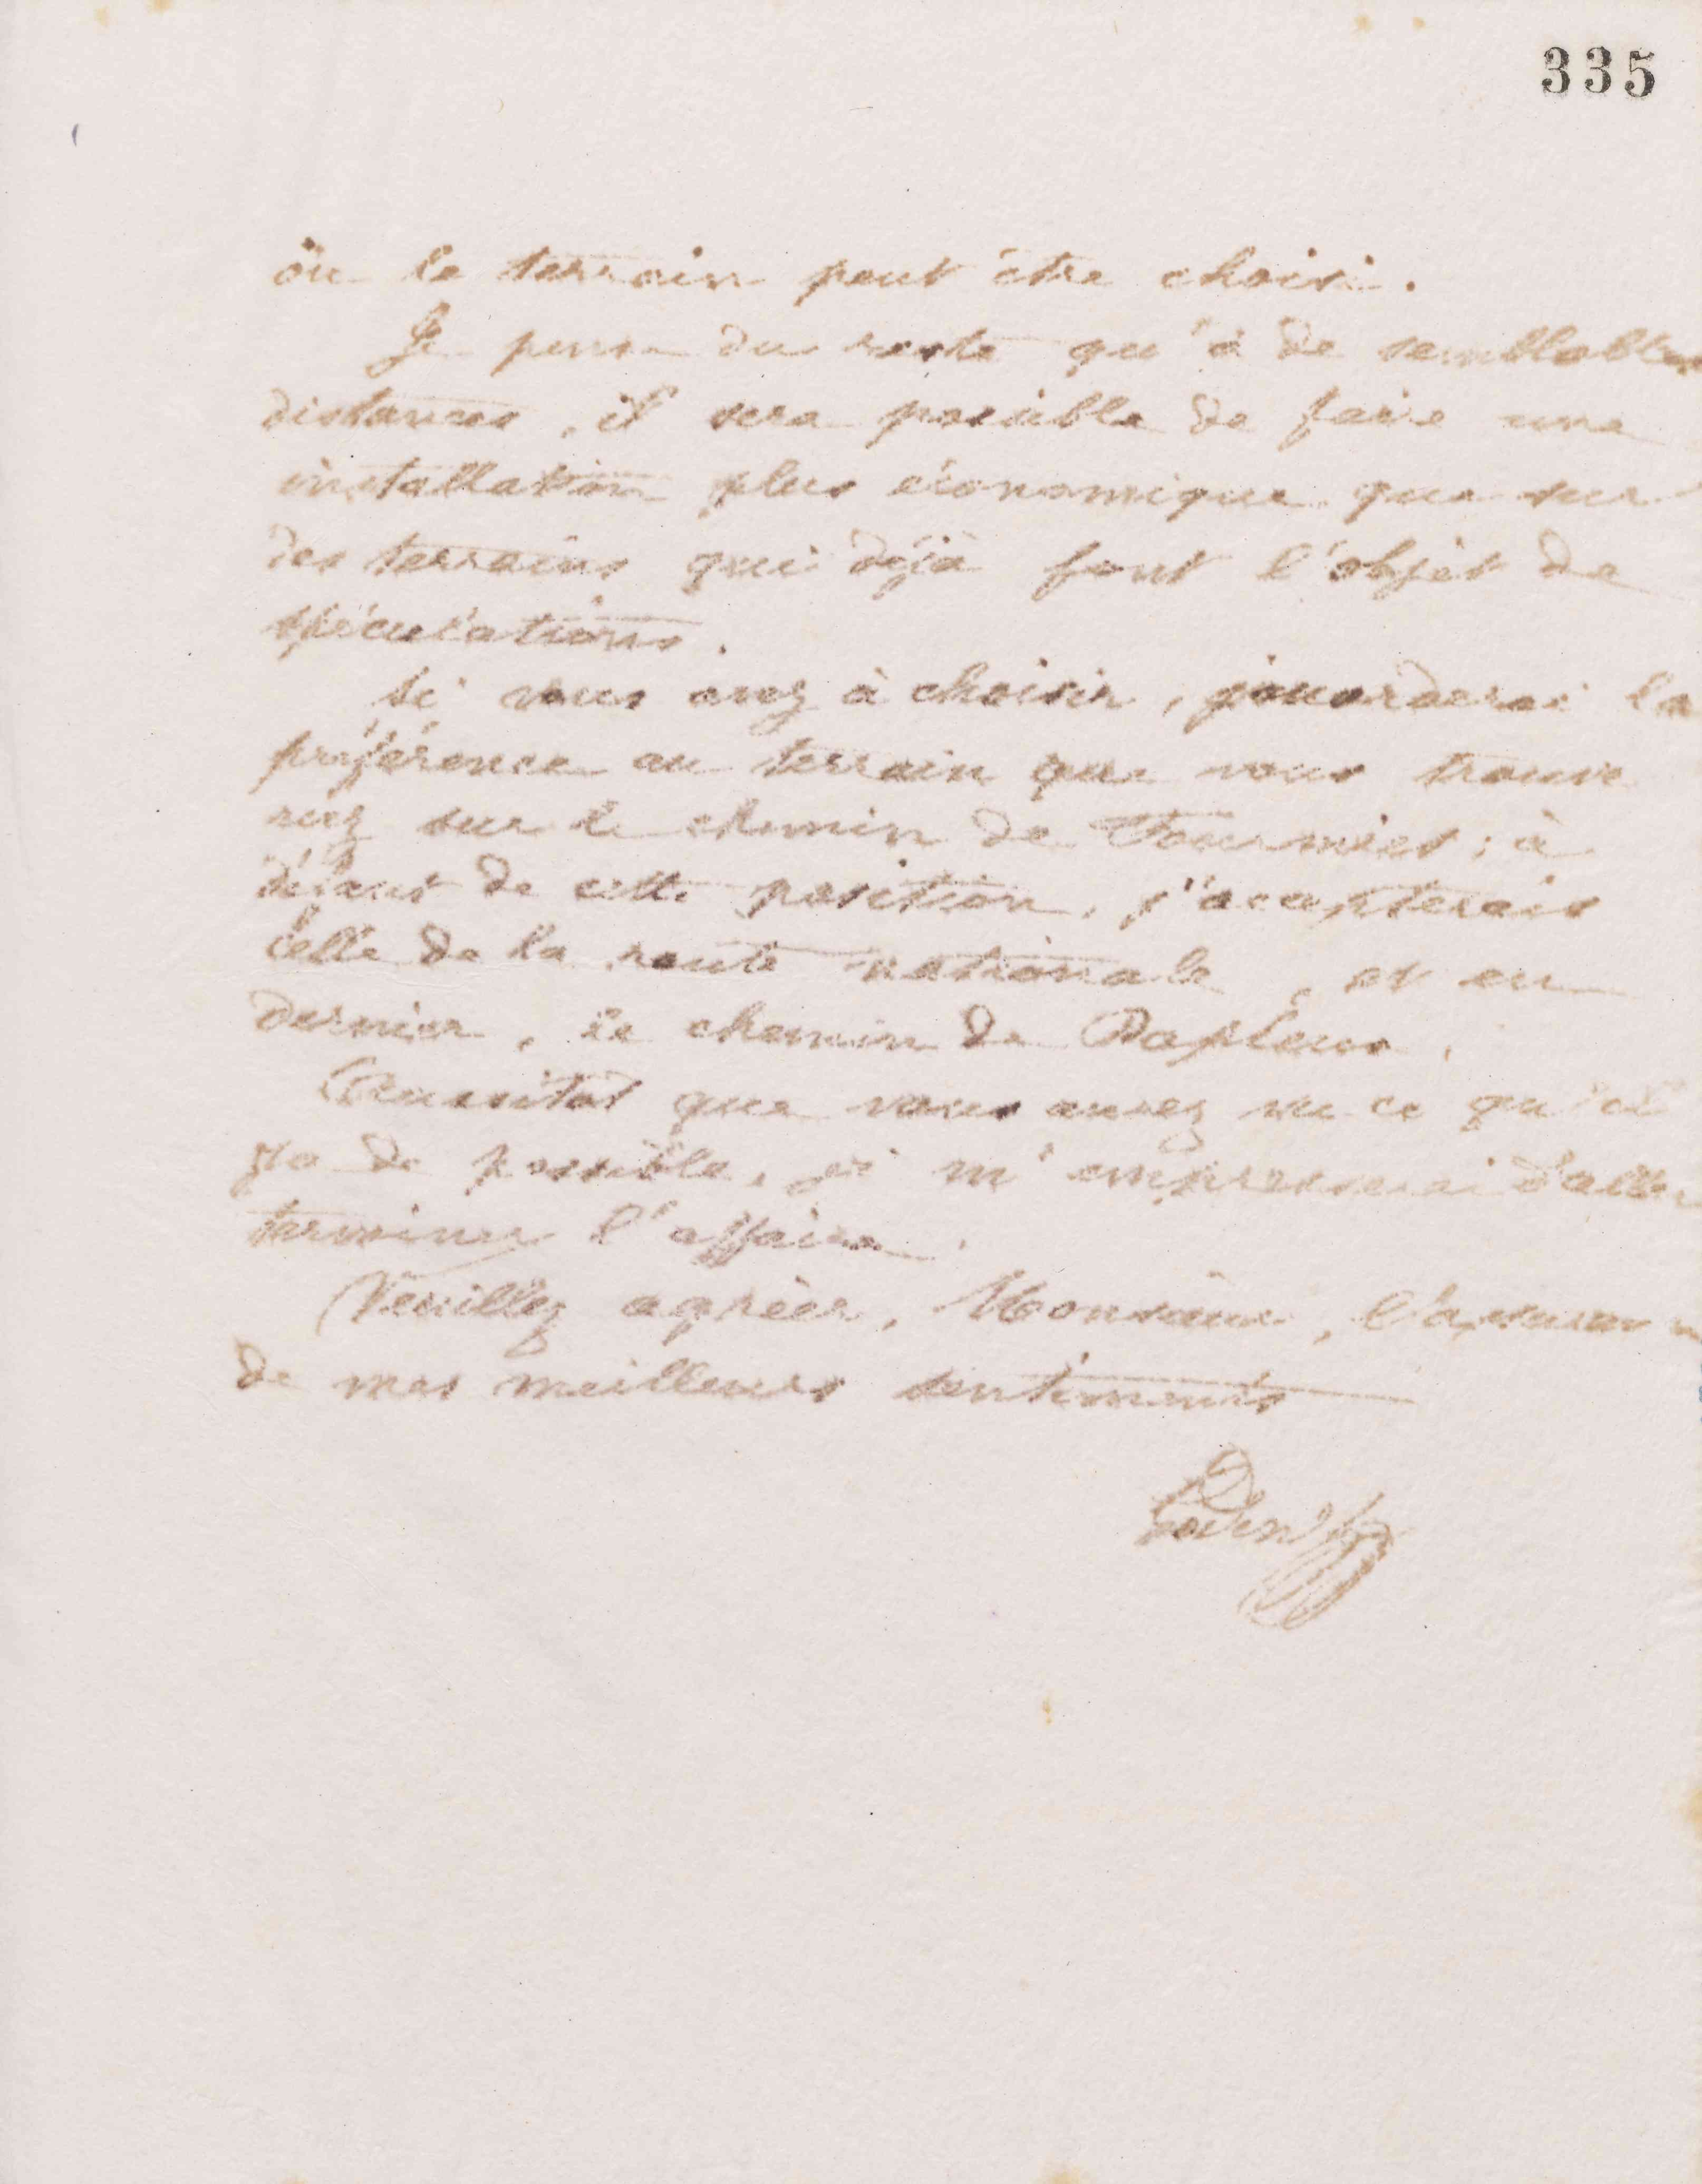 335
où le terrain peut être choisi.
Je pense du reste qu'à de semblables
distances, il sera possible de faire une
installation plus économique que sur
des terrains qui déjà font l'objet de
spéculations.
Si vous avez à choisir, j'accorderai la
préférence au terrain que vous trouve
rez sur le chemin de Fourmies; à
défaut de cette position, j'accepterais
celle de la route nationale, et en
dernier, le chemin de Papleux.
Aussitôt que vous aurez vu ce qu'il
y a de possible, je m'empresserai d'aller
terminer l'affaire.
Veuillez agréer, Monsieur, l'assurance
de mes meilleurs sentiments
Godin